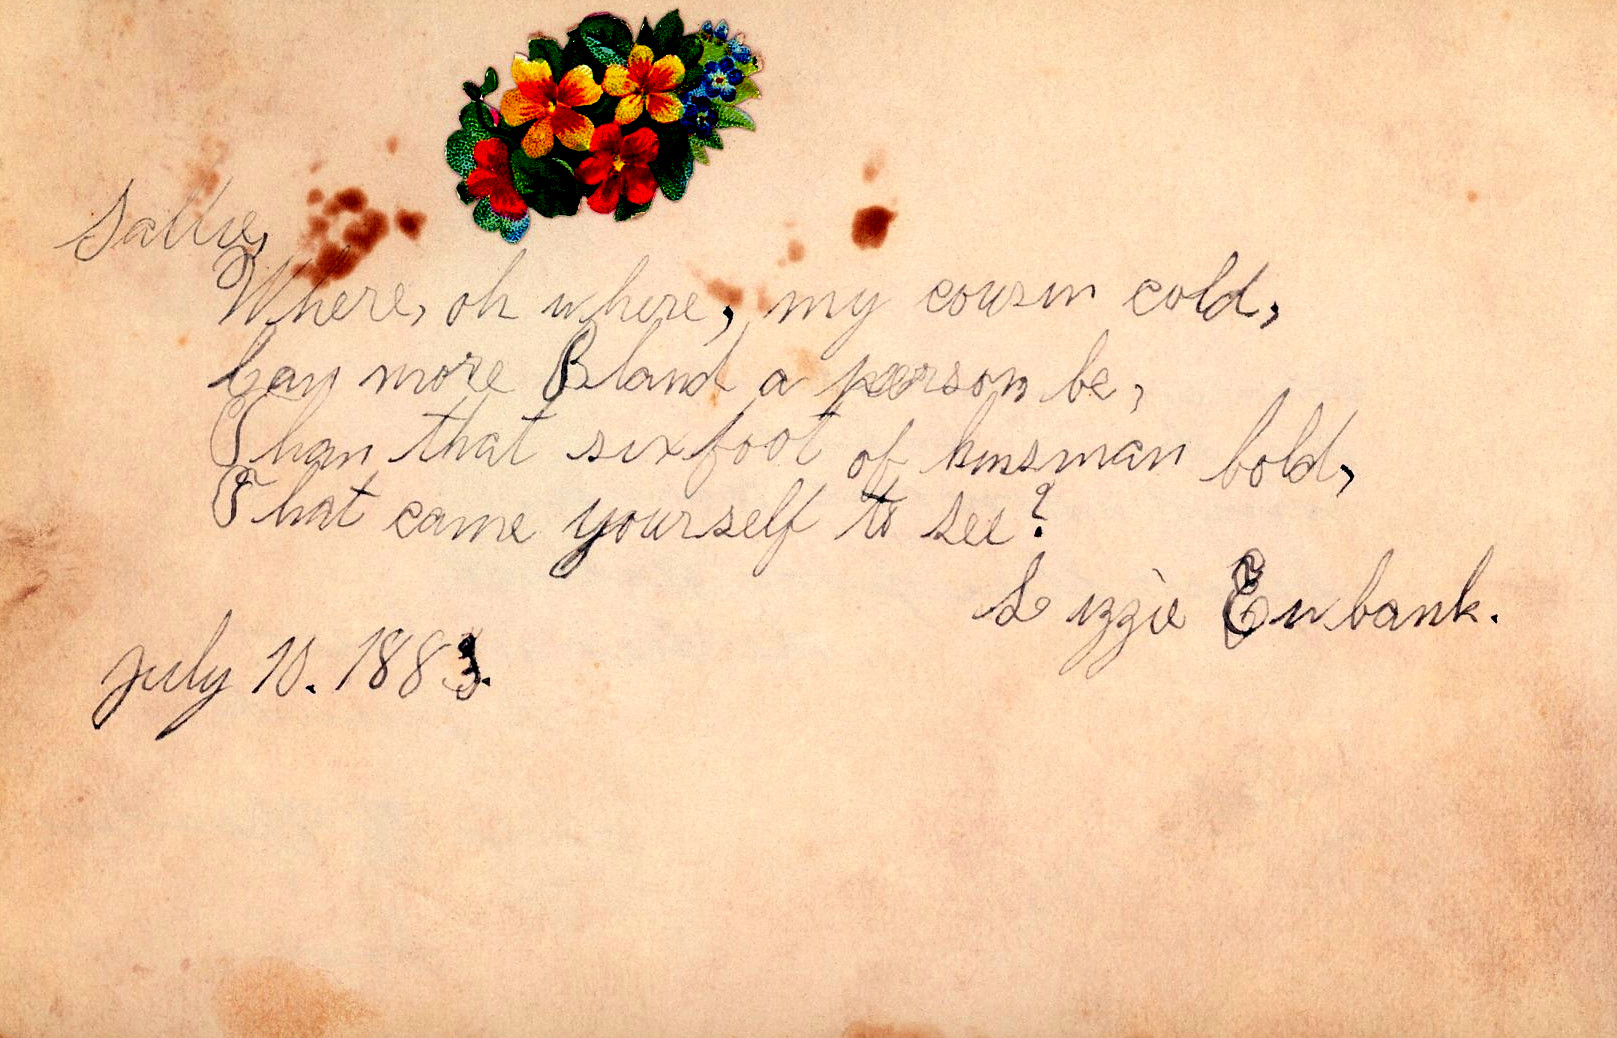 Sallie,
Where, oh where, my cousin cold,
Can more Bland a person be,
Than that six foot of kinsman bold,
That came yourself to see?
Lizzie Eubank.
July 10. 1883.